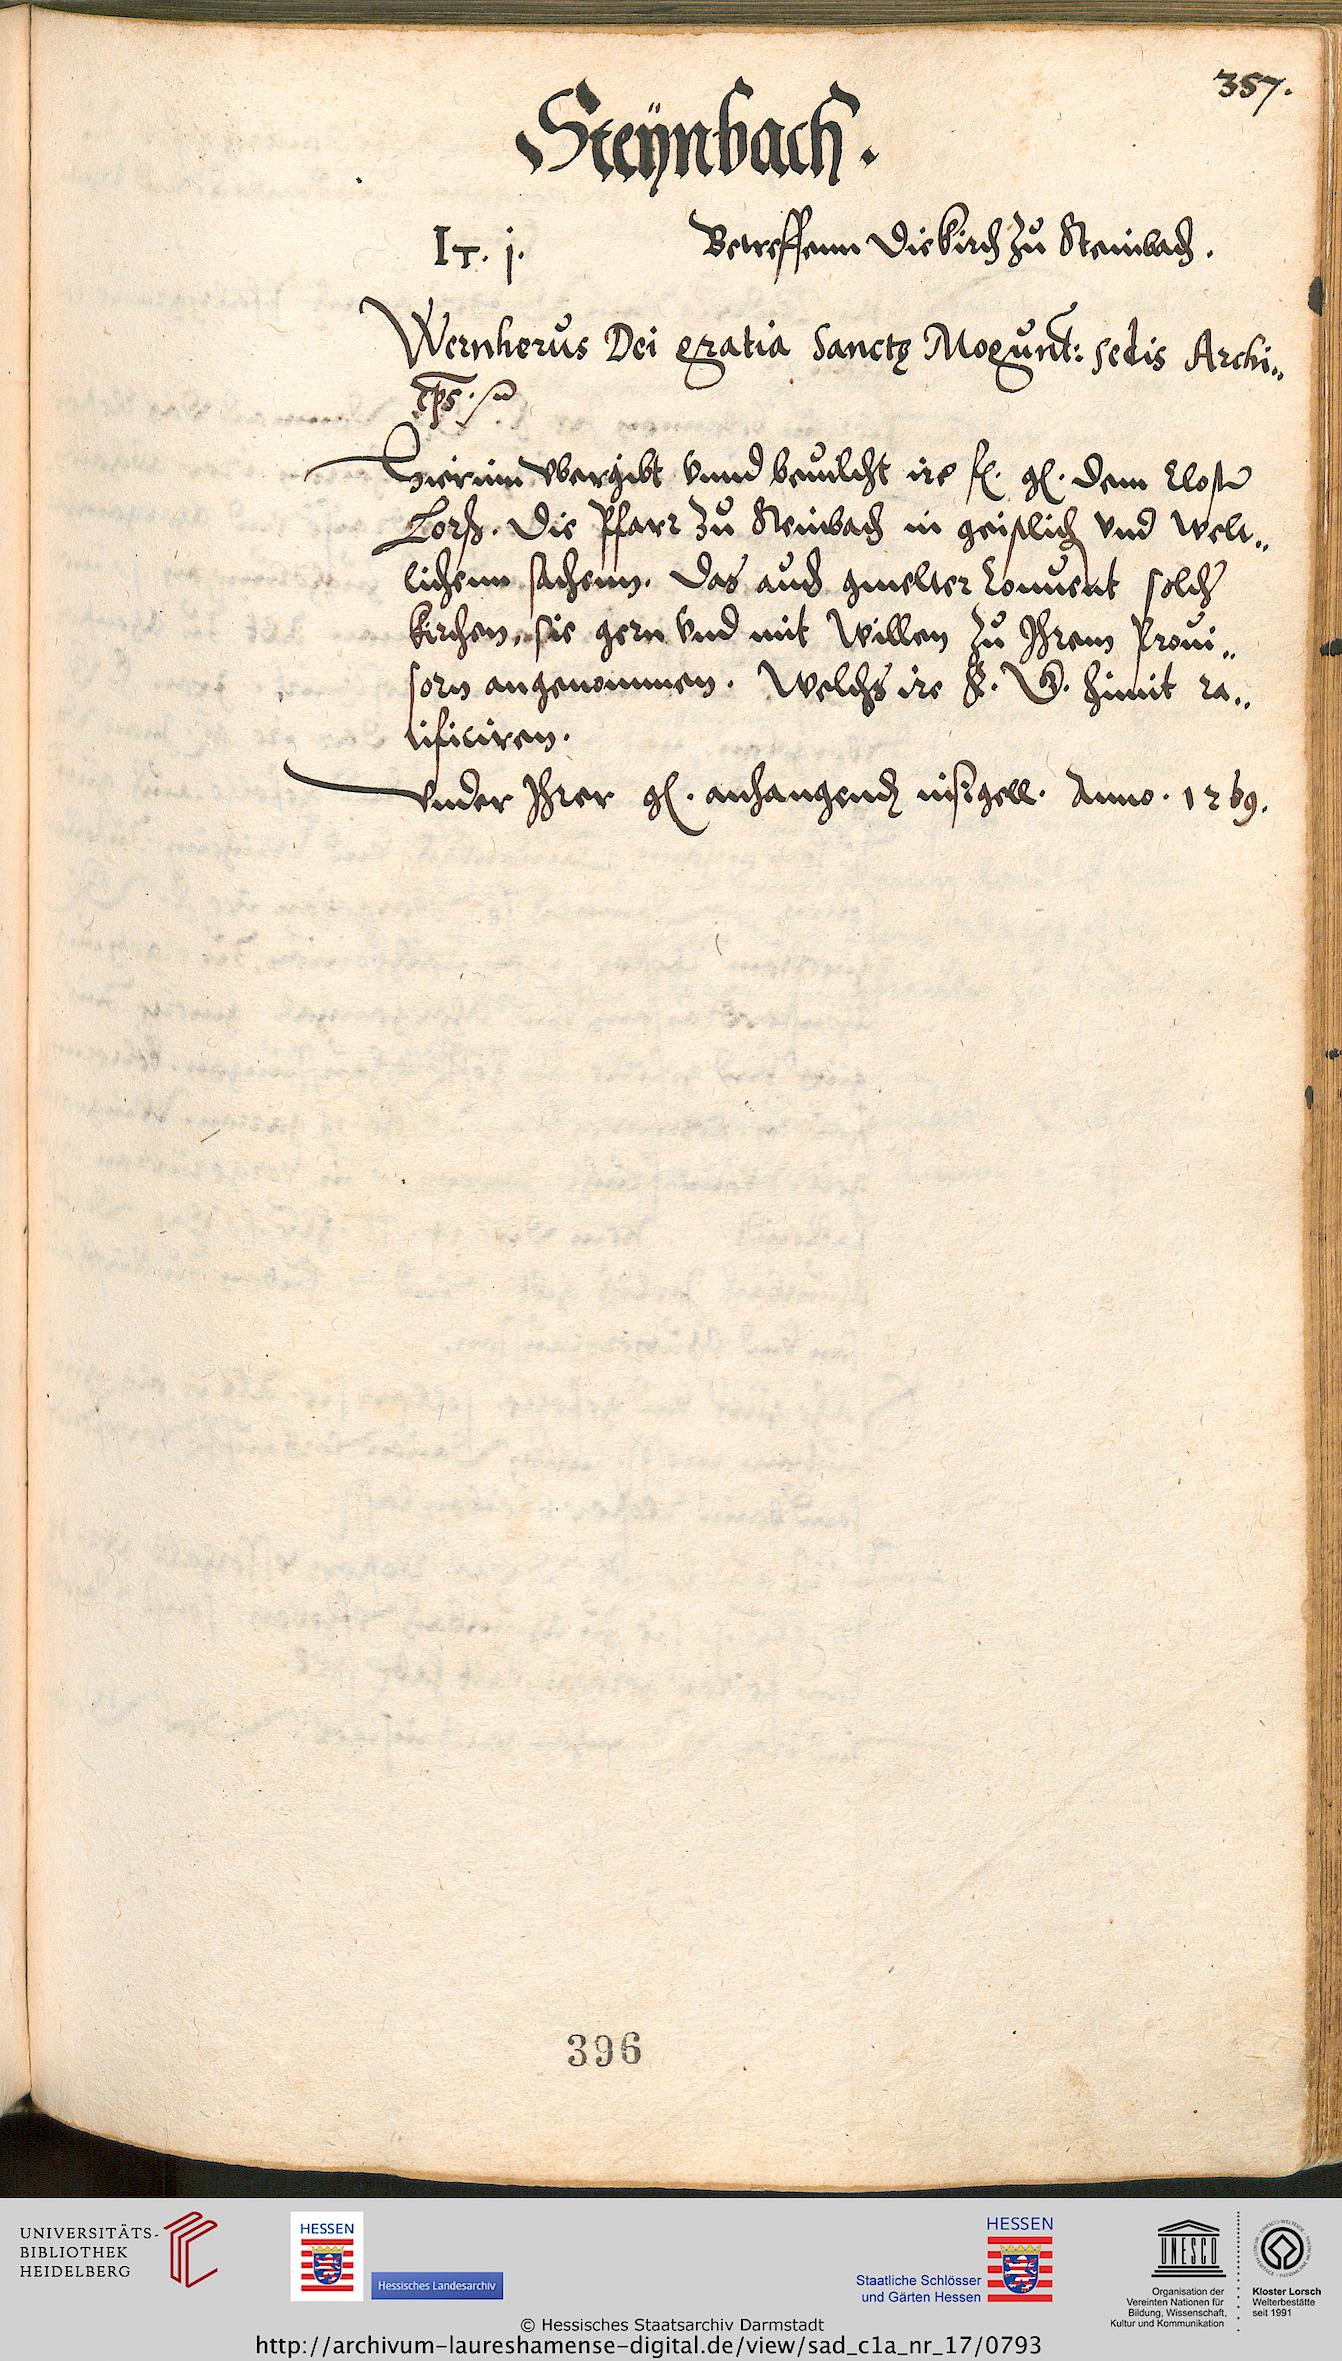 357.
Steÿnbach.
IT. j.
Betreffenn die kirch zu Steinbach.
Wernherus Dei gratia Sanctę Mogunt: sedis Archi„
eps.
Hierinn vbergibt vnnd beuilcht ire f. g. dem Closter
Lorß. Die Pfarr zu Steinbach in geistlich vnd welt„
lichenn sachenn. Das auch gmelter Conuent solch
kirchen, sie gern vnd mit Willen zu Ihrem Proui„
sorn angenommen. Welchs ire himit ra„
tificiren.
Vnder Ihrer g. anhangend innsigell. Anno. 1269.
396
UNIVERSITÄTS-
BIBLIOTHEK
HEIDELBERG
HESSEN
Hessisches Landesarchiv
HESSEN
Staatliche Schlösser
und Gärten Hessen
UNESCO
Organisation der
Vereinten Nationen für
Bildung, Wissenschaft,
Kultur und Kommunikation
Kloster Lorsch
Welterbestätte
seit 1991
© Hessisches Staatsarchiv Darmstadt
http://archivum-laureshamense-digital.de/view/sad_c1a_nr_17/0793